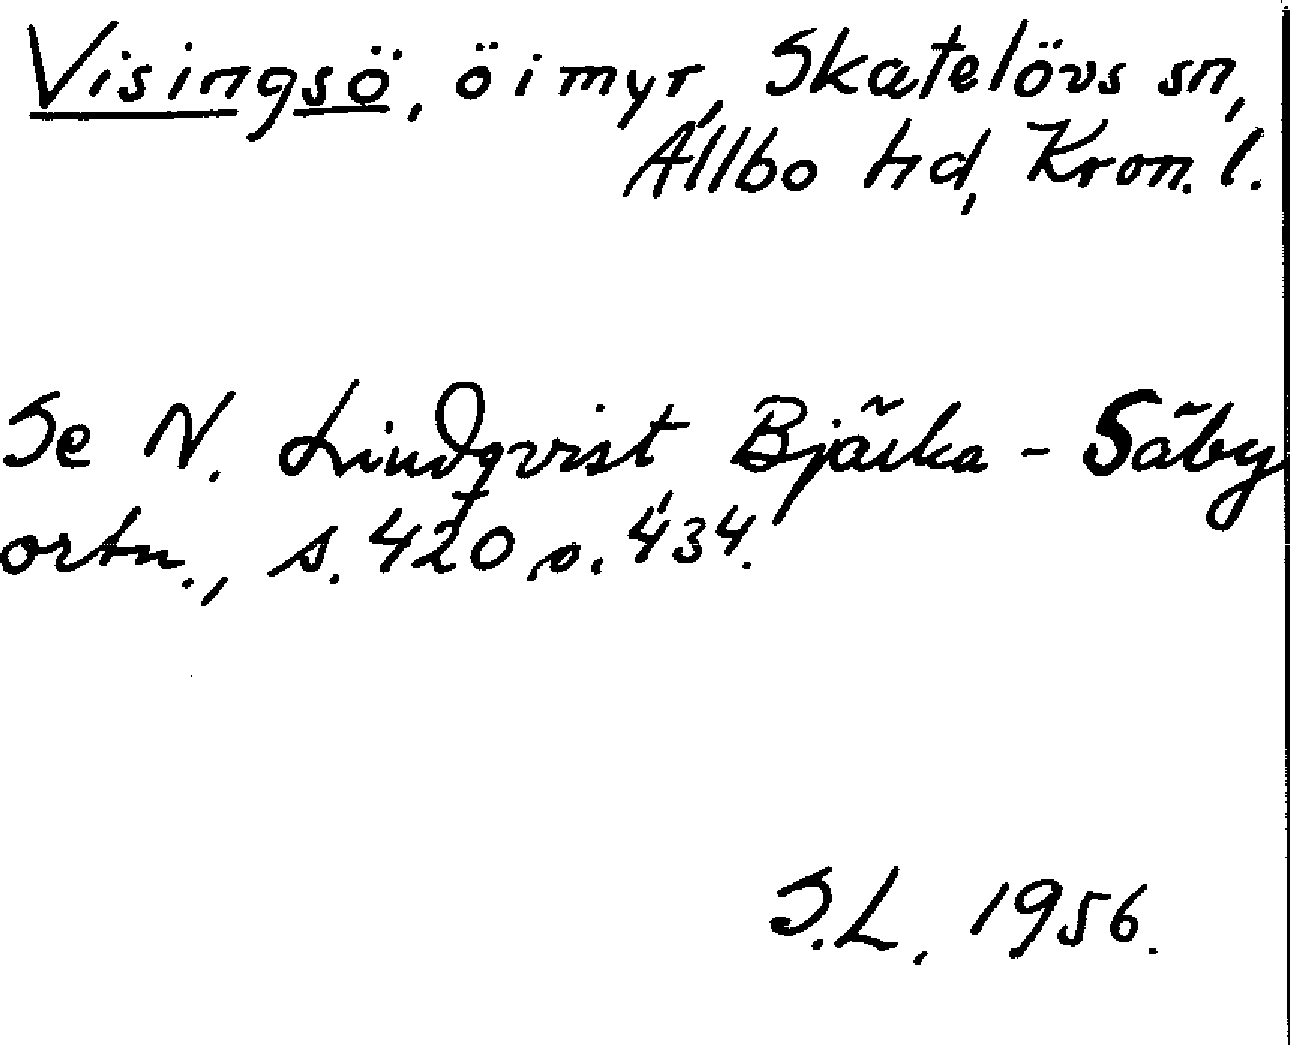 Visingsö, ö i myr, Skatelövs sn,
Allbo hd, Kron. l.
Se N. Lindqvist, Bjärka-Säby
ortn., s. 420 o. 434.
S.L. 1956.